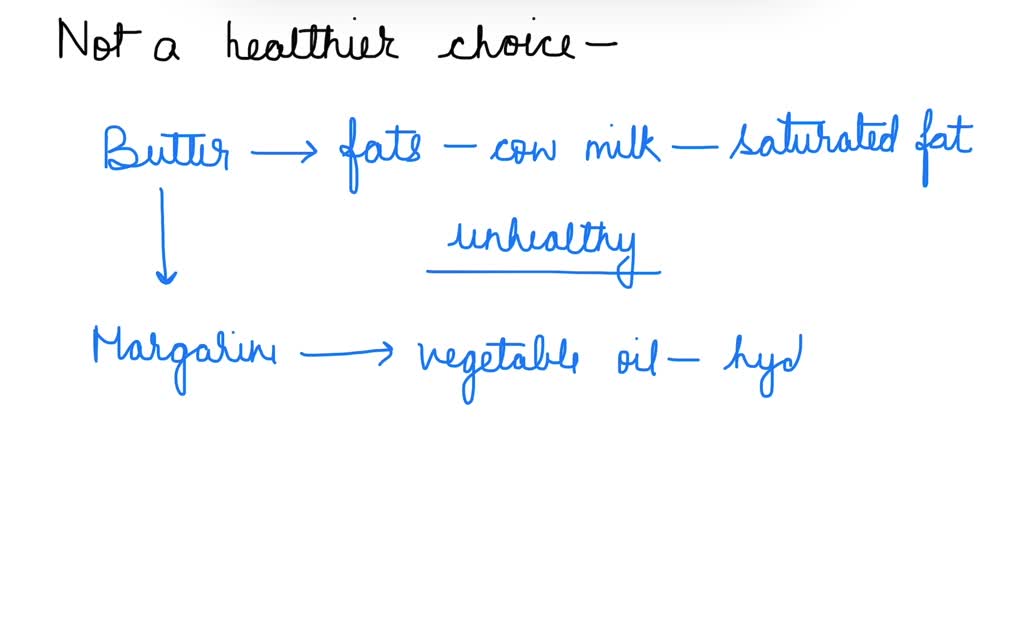 Not a healthier choice –
Butter → fats – cow milk – saturated fat
unhealthy
Margarine → vegetable oil – hyd